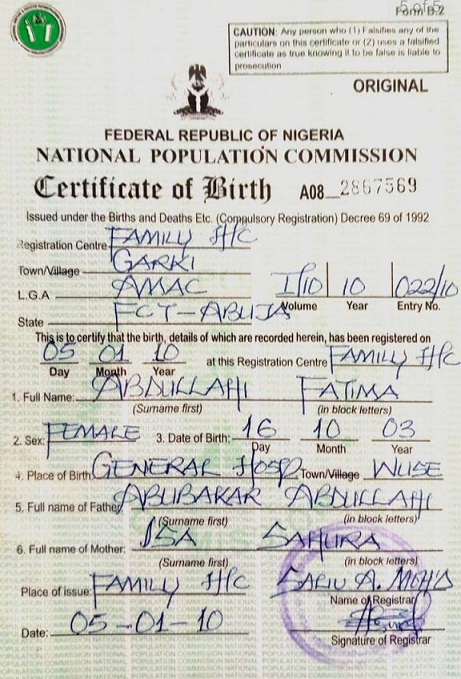 Form B.2
5 of 5
CAUTION: Any person who (1) Falsifies any of the
particulars on this certificate or (2) uses a falsified
certificate as true knowing it to be false is liable to
prosecution
ORIGINAL
FEDERAL REPUBLIC OF NIGERIA
NATIONAL POPULATION COMMISSION
Certificate of Birth A08 2867569
Issued under the Births and Deaths Etc. (Compulsory Registration) Decree 69 of 1992
Registration Centre FAMILY HC
Town/Village GARKI
L.G.A AMAC I/10 10 022/10
Volume Year Entry No.
State FCT-ABUJA
This is to certify that the birth, details of which are recorded herein, has been registered on
05 01 10 at this Registration Centre FAMILY HC
Day Month Year
1. Full Name: ABDULLAHI FATIMA
(Surname first) (in block letters)
2. Sex: FEMALE 3. Date of Birth: 16 10 03
Day Month Year
4. Place of Birth GENERAL HOSP Town/Village WUSE
5. Full name of Father ABUBAKAR ABDULLAHI
(Surname first) (in block letters)
6. Full name of Mother: ISA SAHURA
(Surname first) (in block letters)
Place of issue: FAMILY HC SAFIU A. MOH'D
Name of Registrar
Date: 05-01-10
Signature of Registrar